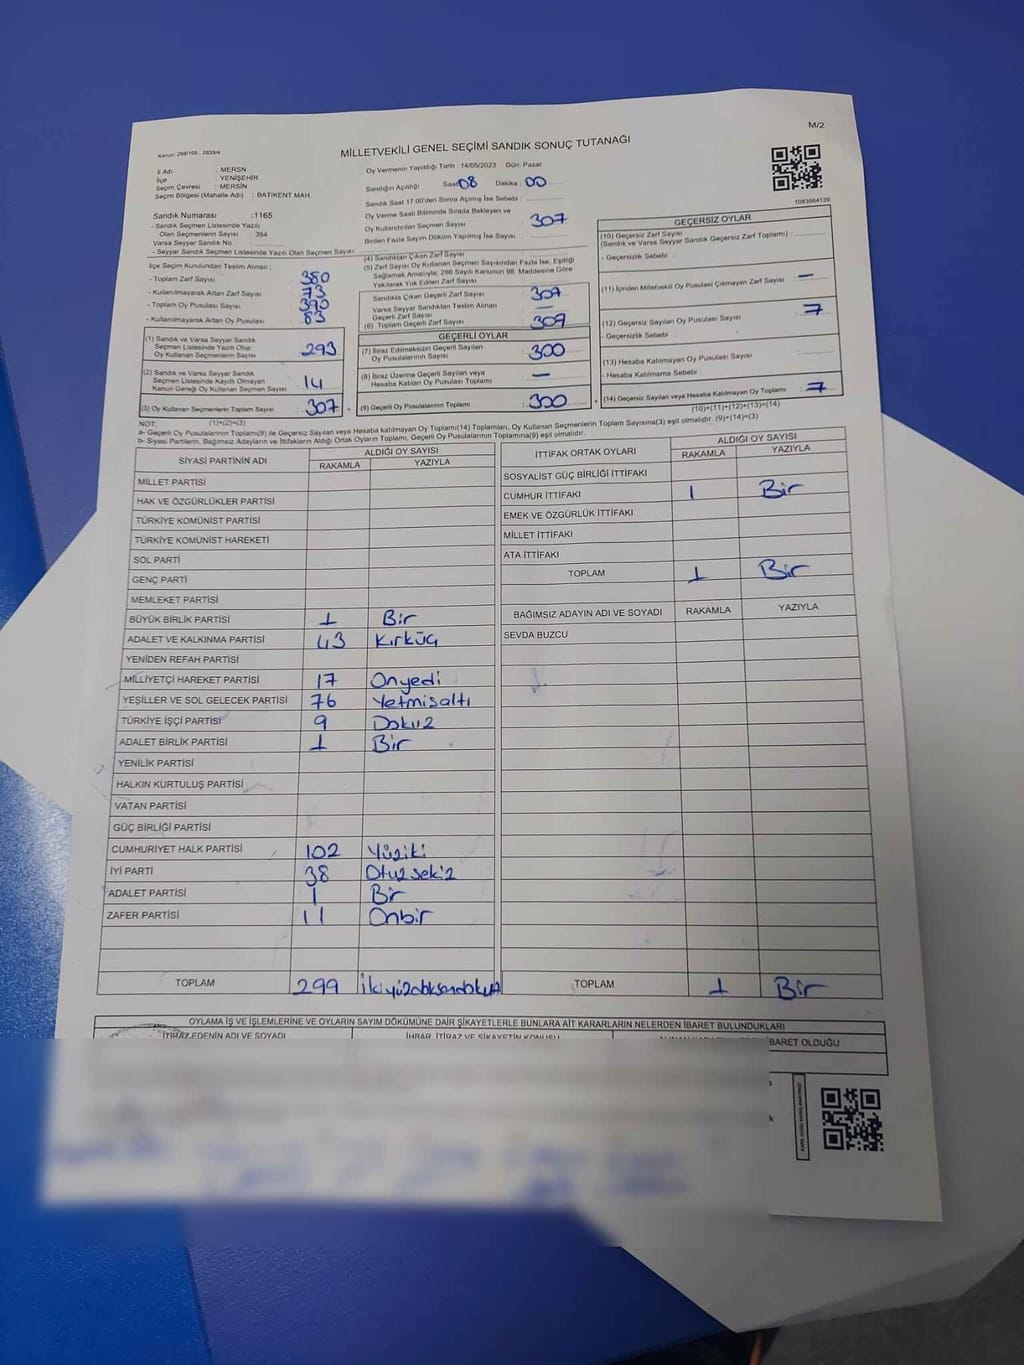 M/2
Kanun: 298/105 ; 2839/4
MİLLETVEKİLİ GENEL SEÇİMİ SANDIK SONUÇ TUTANAĞI
İl Adı : MERSN
İlçe : YENİŞEHİR
Seçim Çevresi : MERSİN
Seçim Bölgesi (Mahalle Adı) : BATIKENT MAH.
Sandık Numarası :1165
- Sandık Seçmen Listesinde Yazılı
Olan Seçmenlerin Sayısı : 354
Varsa Seyyar Sandık No :
- Seyyar Sandık Seçmen Listesinde Yazılı Olan Seçmen Sayısı:
İlçe Seçim Kurulundan Teslim Alınan :
- Toplam Zarf Sayısı : 380
- Kullanılmayarak Artan Zarf Sayısı : 73
- Toplam Oy Pusulası Sayısı : 390
- Kullanılmayarak Artan Oy Pusulası : 83
(1) Sandık ve Varsa Seyyar Sandık
Seçmen Listesinde Yazılı Olup
Oy Kullanan Seçmenlerin Sayısı : 293
(2) Sandık ve Varsa Seyyar Sandık
Seçmen Listesinde Kayıtlı Olmayan
Kanun Gereği Oy Kullanan Seçmen Sayısı : 14
(3) Oy Kullanan Seçmenlerin Toplam Sayısı : 307
(1)+(2)=(3)
Oy Vermenin Yapıldığı Tarih : 14/05/2023 Gün: Pazar
Sandığın Açıldığı Saat: 08 Dakika : 00
Sandık Saat 17:00'den Sonra Açılmış İse Sebebi :
Oy Verme Saati Bitiminde Sırada Bekleyen ve
Oy Kullandırılan Seçmen Sayısı : 307
Birden Fazla Sayım Döküm Yapılmış İse Sayısı :
(4) Sandıktan Çıkan Zarf Sayısı :
(5) Zarf Sayısı Oy Kullanan Seçmen Sayısından Fazla İse, Eşitliği
Sağlamak Amacıyla; 298 Sayılı Kanunun 98. Maddesine Göre
Yakılarak Yok Edilen Zarf Sayısı :
Sandıkta Çıkan Geçerli Zarf Sayısı : 307
Varsa Seyyar Sandıktan Teslim Alınan
Geçerli Zarf Sayısı : —
(6) Toplam Geçerli Zarf Sayısı : 307
GEÇERLİ OYLAR
(7) İtiraz Edilmeksizin Geçerli Sayılan
Oy Pusulalarının Sayısı : 300
(8) İtiraz Üzerine Geçerli Sayılan veya
Hesaba Katılan Oy Pusulası Toplamı : —
(9) Geçerli Oy Pusulalarının Toplamı : 300
1083664139
GEÇERSİZ OYLAR
(10) Geçersiz Zarf Sayısı
(Sandık ve Varsa Seyyar Sandık Geçersiz Zarf Toplamı) :
- Geçersizlik Sebebi :
(11) İçinden Milletvekili Oy Pusulası Çıkmayan Zarf Sayısı : —
(12) Geçersiz Sayılan Oy Pusulası Sayısı : 7
- Geçersizlik Sebebi :
(13) Hesaba Katılmayan Oy Pusulası Sayısı :
- Hesaba Katılmama Sebebi :
(14) Geçersiz Sayılan veya Hesaba Katılmayan Oy Toplamı : 7
(10)+(11)+(12)+(13)=(14)
NOT:
a- Geçerli Oy Pusulalarının Toplamı(9) ile Geçersiz Sayılan veya Hesaba katılmayan Oy Toplamı(14) Toplamları, Oy Kullanan Seçmenlerin Toplam Sayısına(3) eşit olmalıdır. (9)+(14)=(3)
b- Siyasi Partilerin, Bağımsız Adayların ve İttifakların Aldığı Ortak Oyların Toplamı, Geçerli Oy Pusulalarının Toplamına(9) eşit olmalıdır.
SİYASİ PARTİNİN ADI ALDIĞI OY SAYISI
RAKAMLA YAZIYLA
MİLLET PARTİSİ
HAK VE ÖZGÜRLÜKLER PARTİSİ
TÜRKİYE KOMÜNİST PARTİSİ
TÜRKİYE KOMÜNİST HAREKETİ
SOL PARTİ
GENÇ PARTİ
MEMLEKET PARTİSİ
BÜYÜK BİRLİK PARTİSİ 1 Bir
ADALET VE KALKINMA PARTİSİ 43 Kırküç
YENİDEN REFAH PARTİSİ
MİLLİYETÇİ HAREKET PARTİSİ 17 Onyedi
YEŞİLLER VE SOL GELECEK PARTİSİ 76 Yetmişaltı
TÜRKİYE İŞÇİ PARTİSİ 9 Dokuz
ADALET BİRLİK PARTİSİ 1 Bir
YENİLİK PARTİSİ
HALKIN KURTULUŞ PARTİSİ
VATAN PARTİSİ
GÜÇ BİRLİĞİ PARTİSİ
CUMHURİYET HALK PARTİSİ 102 Yüziki
İYİ PARTİ 38 Otuzsekiz
ADALET PARTİSİ 1 Bir
ZAFER PARTİSİ 11 Onbir
TOPLAM 299
İTTİFAK ORTAK OYLARI ALDIĞI OY SAYISI
RAKAMLA YAZIYLA
SOSYALİST GÜÇ BİRLİĞİ İTTİFAKI
CUMHUR İTTİFAKI 1 Bir
EMEK VE ÖZGÜRLÜK İTTİFAKI
MİLLET İTTİFAKI
ATA İTTİFAKI
TOPLAM 1 Bir
BAĞIMSIZ ADAYIN ADI VE SOYADI RAKAMLA YAZIYLA
SEVDA BUZCU
TOPLAM 1 Bir
OYLAMA İŞ VE İŞLEMLERİNE VE OYLARIN SAYIM DÖKÜMÜNE DAİR ŞİKAYETLERLE BUNLARA AİT KARARLARIN NELERDEN İBARET BULUNDUKLARI
İTİRAZ EDENİN ADI VE SOYADI İHBAR, İTİRAZ VE ŞİKAYETİN KONUSU BARET OLDUĞU